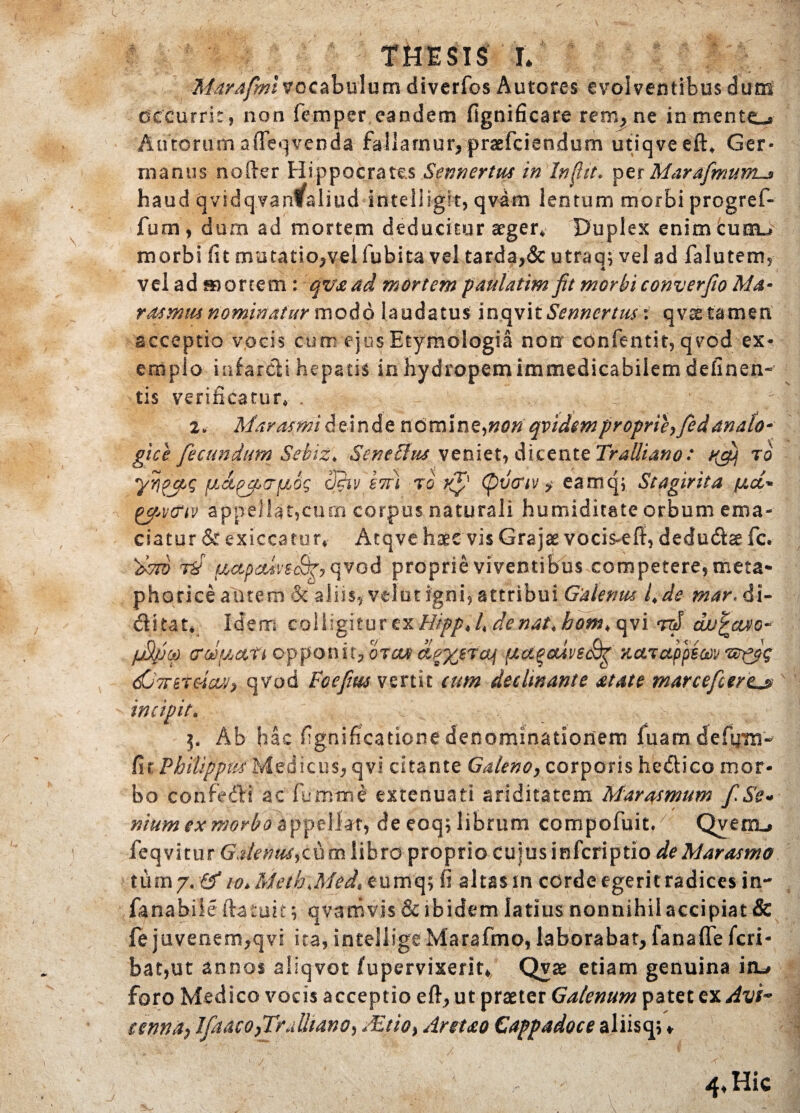 THESIS I.
Marasmi vocabulum diversos Autores evolventibus dum
occurrit, non semper eandem significare rem, ne in mente
Autorum asseqvenda fallamur, præsciendum utiqve est. Ger-
manus noster Hippocrates Sennertus in Instit. per Marasmum
haud qvidqvam aliud intelligit, qvàm lentum morbi progres-
sum, dum ad mortem deducitur æger. Duplex enim cum
morbi sit mutatio, vel subita vel tarda, & utraq; vel ad salutem,
vel ad mortem: qvæ ad mortem paulatim fit morbi conversio Ma-
rasmus nominatur modò laudatus inqvit Sennertus: qvæ tamen
acceptio vocis cum ejus Etymologiâ non consentit, qvod ex-
emplo infarcti hepatis in hydropem immedicabilem desinen-
tis verificatur.
2. Marasmi deinde nomine, non qvidem propriè, sed analo-
gicè secundum Sebiz. Senectus veniet, dicente Tralliano: καὶ τὸ
γῆρας μάρασμός ἐστιν ἐπὶ τὸ κατὰ φύσιν, eamq; Stagirita μά-
ρανσιν appellat, cum corpus naturali humiditate orbum ema-
ciatur & exiccatur. Atqve hæc vis Grajæ vocis est, deductæ sc.
ἀπὸ τοῦ μαραίνεσθαι, qvod propriè viventibus competere, meta-
phoricè autem & aliis, velut igni, attribui Galenus l. de mar. di-
ctitat. Idem colligitur ex Hipp. l. de nat. hom. qvi τῷ αὐξανο-
μένῳ σώματι opponit, ὅταν ἄρχεται μαραίνεσθαι καταρρέων πρὸς
ἀπετείαν, qvod Foesius vertit cum declinante ætate marcescere
incipit.
3. Ab hâc significatione denominationem suam desum-
sit Philippus Medicus, qvi citante Galeno, corporis hectico mor-
bo confecti ac summè extenuati ariditatem Marasmum s. Se-
nium ex morbo appellat, de eoq; librum composuit. Qvem
seqvitur Galenus, cùm libro proprio cujus inscriptio de Marasmo
tùm 7. & 10. Meth. Med. eumq; si altas in corde egerit radices in-
sanabilè statuit; qvamvis & ibidem latius nonnihil accipiat &
se juvenem, qvi ita, intellige Marasmo, laborabat, sanasse scri-
bat, ut annos aliqvot supervixerit. Qvæ etiam genuina in
foro Medico vocis acceptio est, ut præter Galenum patet ex Avi-
cenna, Isaaco, Tralliano, Ætio, Aretæo Cappadoce aliisq;.
4. Hic